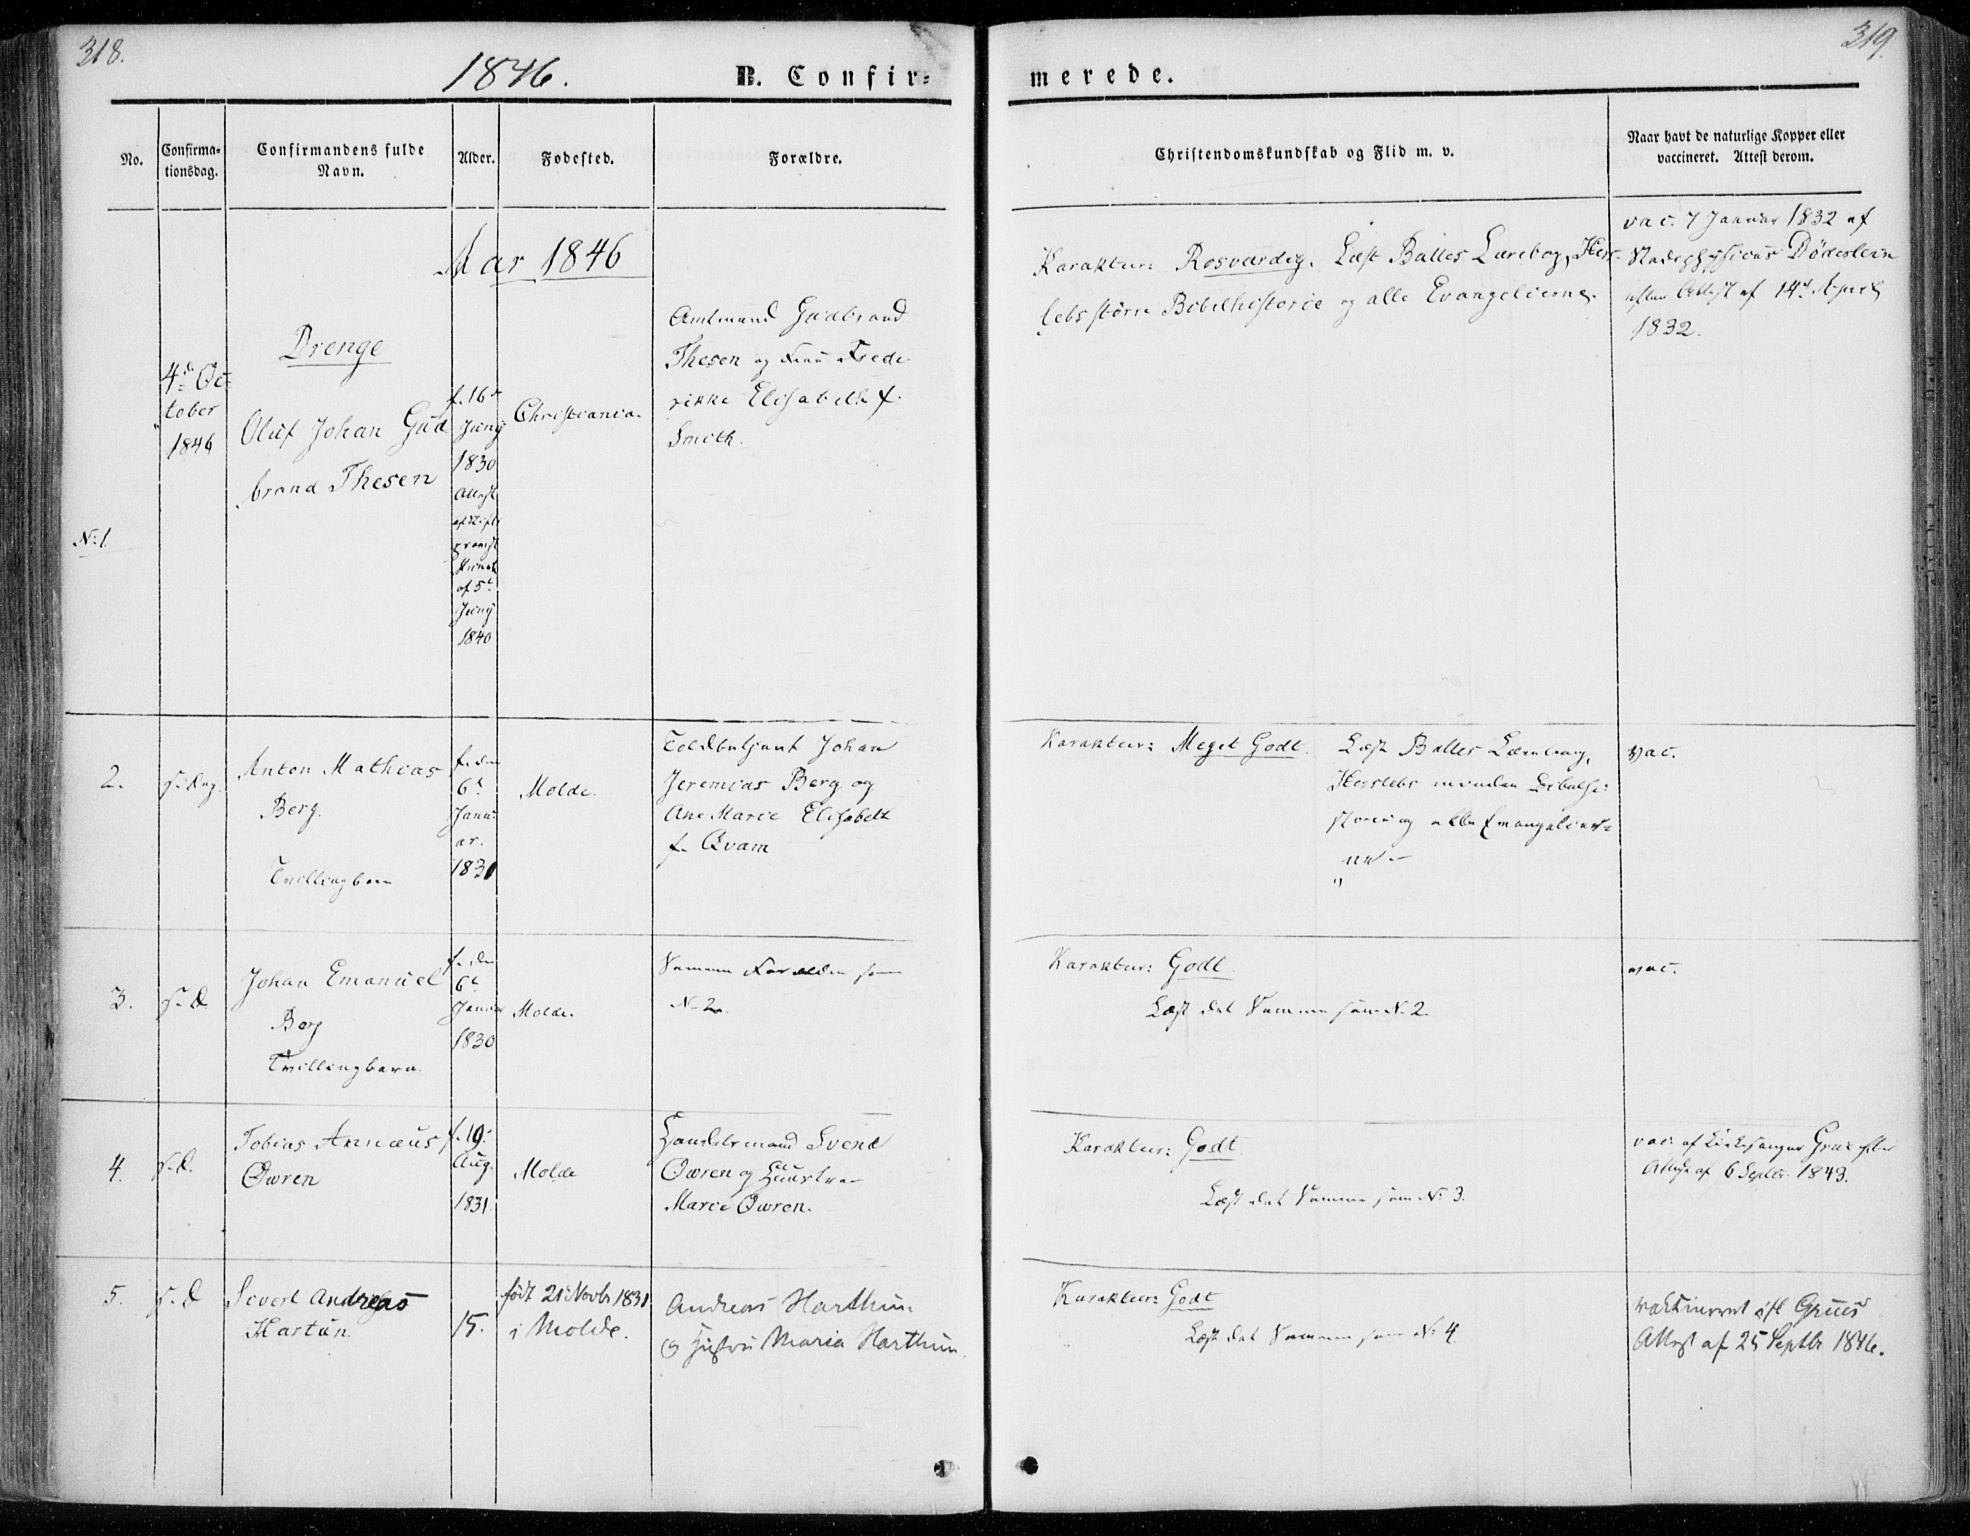 318.
1846.
B. Confir=
No.
Confirma-
tionsdag.
Confirmandens fulde
Navn.
Alder.
Fødested.
Forældre.
Aar 1846
Drenge
No 1.
4de Oc-
tober
1846
Oluf Johan Gud
brand Thesen
f. 16de
Juny
1830
Attest
af
af 5t
Juny
1840
Christiania.
Amtmand Gudbrand
Thesen og Frue Frede-
rikke Elisabeth f.
Smith.
2.
s. Dag.
Anton Mathias
Berg.
Tvillingbarn
f. den
6t
Janu-
ar.
1831
Molde.
Toldbetjent Johan
Jeremias Berg og
Ane Marie Elisabeth
f. Qvam
3.
s. D.
Johan Emanuel
Berg
Tvillingbarn.
f. den
6t
Januar
1830
Molde.
Samme Forældre som
N. 2.
4.
s. D.
Tobias Annæus
Øwren
f. 19.
Aug.
1831.
Molde
Handelsmand Svend
Øwren og Hustru
Marie Øwren.
5.
s. D
Sivert Andreas
Hartun.
15.
født 21 Novbr 1831
i Molde.
Andreas Harthun
og Hustru Maria Harthun.
319.
merede.
Christendomskundskab og Flid m. v.
Naar havt de naturlige Kopper eller
vaccineret. Attest derom.
Karakteer: Rosværdig. Læst Balles Lærebog, Hers-
lebs større Bibelhistorie og alle Evangelierne.
vac. 7 Januar 1832 af
Stadsphysicus Döderlein
efter Attest af 14d April
1832.
Karakteer: Meget Godt. Læst Balles Lærebog,
Herslebs mindre Bibelhi-
storie og alle Evangelier-
ne.
vac.
Karakteer: Godt.
Læst det Samme som N. 2.
vac.
Karakteer: Godt.
Læst det Samme som N. 3.
vac. af Kirkesanger Grue efter
Attest af 6 Septbr. 1843.
Karakteer: Godt
Læst det Samme som N. 4.
vaccineret eft Grües
Attest af 25 Septbr 1846.